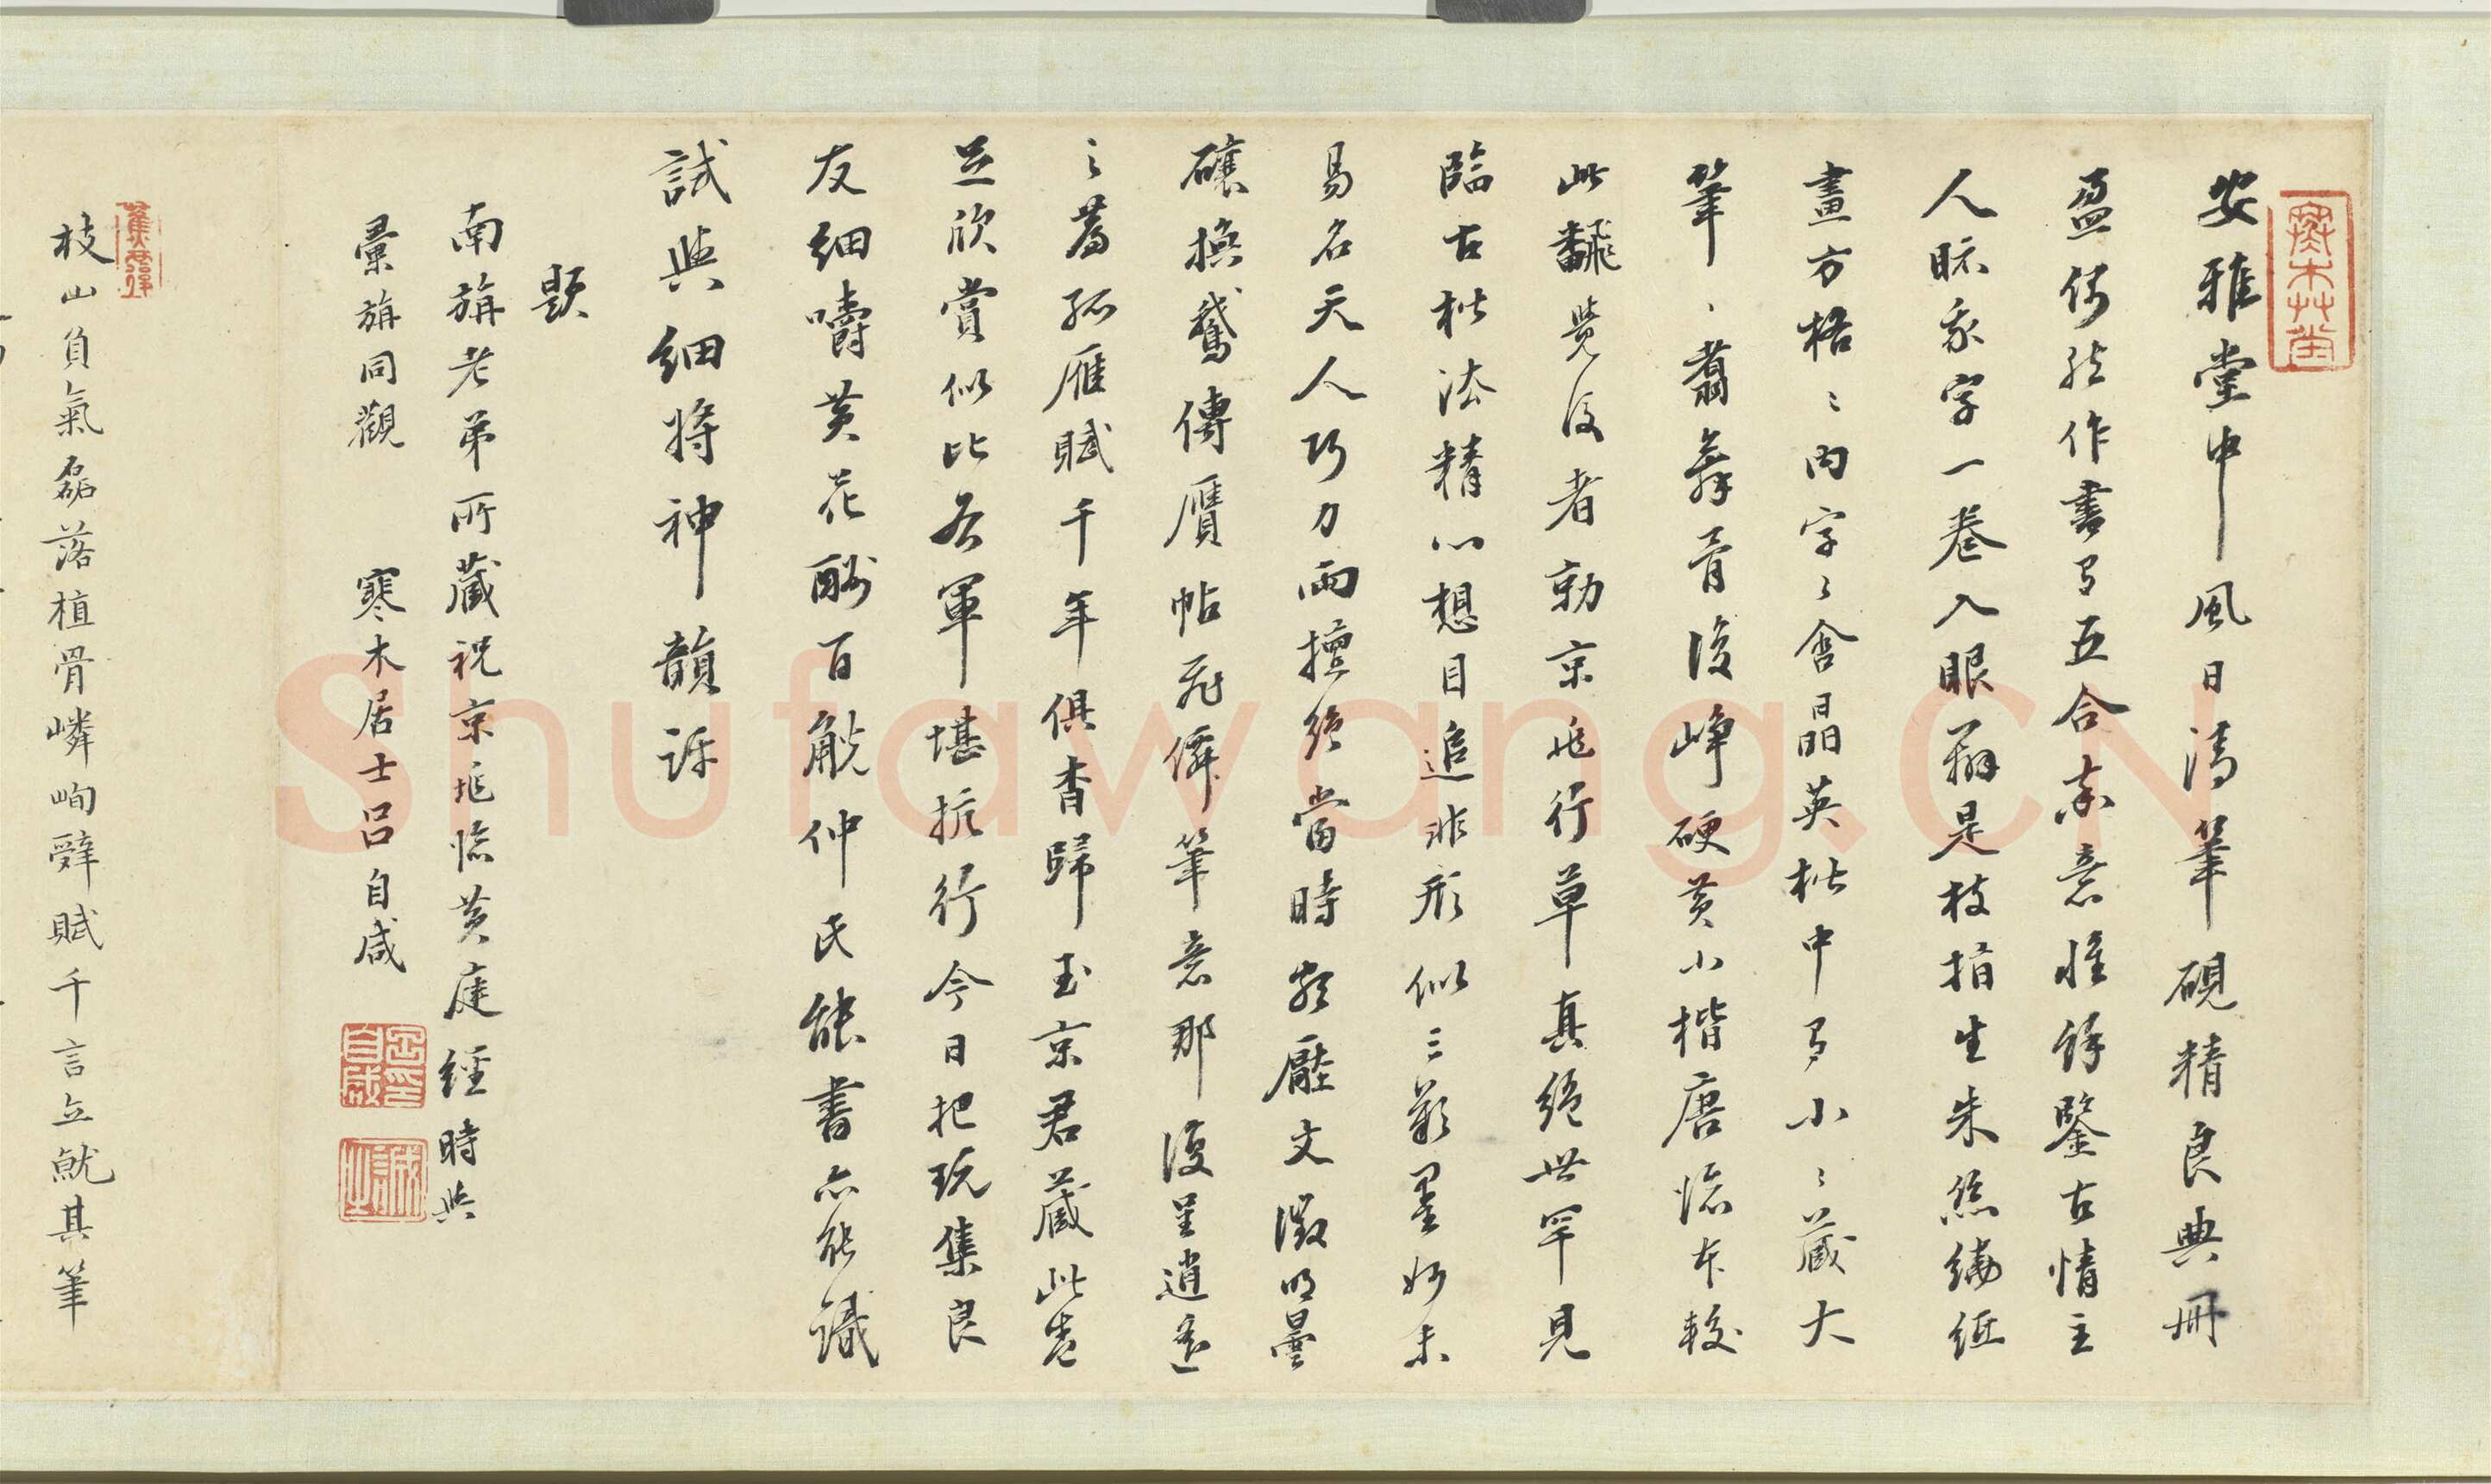 安雅堂中風日清筆硯精良典冊
盈作書有五合奇意惟鋒鑒古情主
人眎我字一卷入眼辨是枝指生朱絲繡紙
畫方格〻內字〻含晶英楷中有小〻藏大
筆〻翥舞骨復崢硬黃小楷唐臨本較
此飜覺後者勍京兆行草真絕世罕見
臨古楷法精心想目追非形似三歎墨妙未
易名天人巧力兩擅絕當時熟壓文徵明曩
攘換鵝傳贋帖飛僊筆意那復呈逍遙
〻蕎孤雁賦千年俱杳歸玉京君藏此卷
並欣賞似比右軍堪抗行今日把玩集良
友細嚼黃花酬百觥仲氏能書亦能識
試與細將神韻評
題
南旃老弟所藏祝京兆臨黃庭經時與
彙旃同觀 寒木居士呂自咸
枝山負氣磊落植骨嶙峋辭賦千言立就其筆
寒木草堂
Shufawang.CN